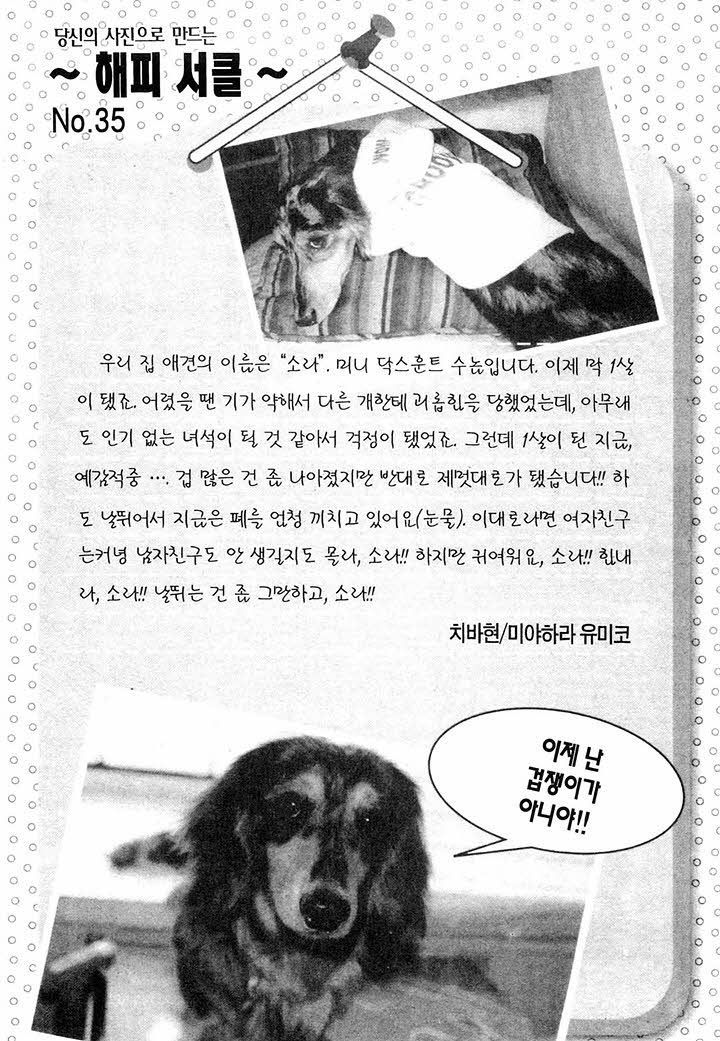 당신의 사진으로 만드는
~ 해피 서클 ~
No.35
우리 집 애견의 이름은 “소라”. 미니 닥스훈트 수놈입니다. 이제 막 1살
이 됐죠. 어렸을 땐 기가 약해서 다른 개한테 괴롭힘을 당했었는데, 아무래
도 인기 없는 녀석이 될 것 같아서 걱정이 됐었죠. 그런데 1살이 된 지금,
예감적중 …. 겁 많은 건 좀 나아졌지만 반대로 제멋대로가 됐습니다!! 하
도 날뛰어서 지금은 폐를 엄청 끼치고 있어요(눈물). 이대로라면 여자친구
는커녕 남자친구도 안 생길지도 몰라, 소라!! 하지만 귀여워요, 소라!! 힘내
라, 소라!! 날뛰는 건 좀 그만하고, 소라!!
치바현/미야하라 유미코
이제 난
겁쟁이가
아니야!!